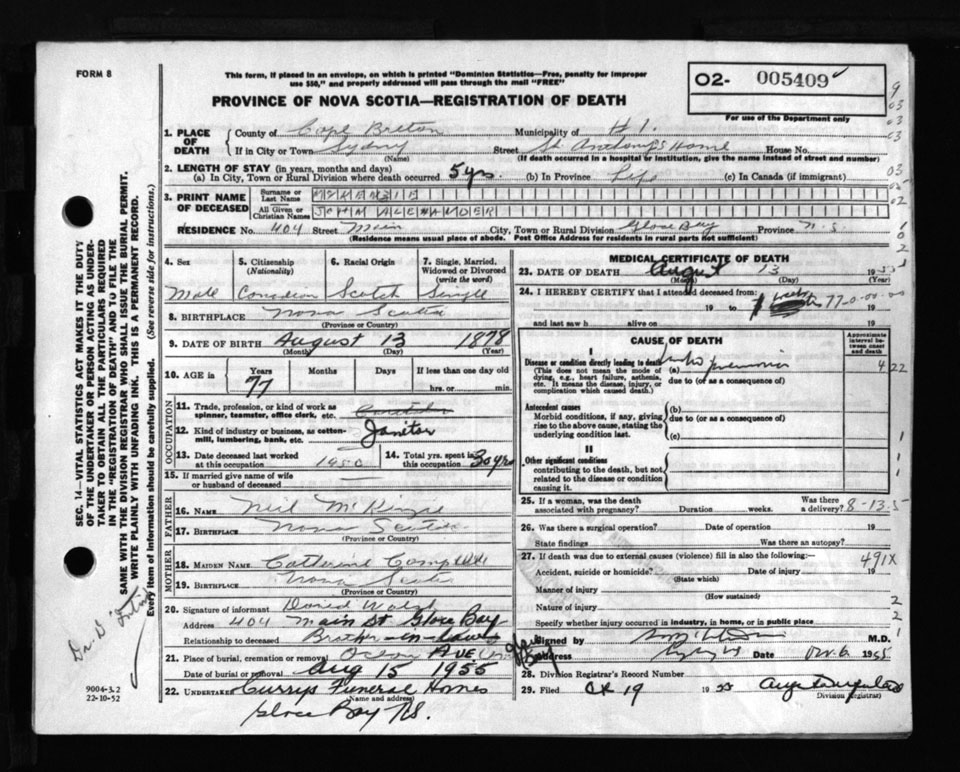 FORM 8
This form, if placed in an envelope, on which is printed "Dominion Statistics—Free, penalty for improper
use $50," and properly addressed will pass through the mail "FREE"
PROVINCE OF NOVA SCOTIA—REGISTRATION OF DEATH
O2- 005409
For use of the Department only
SEC. 14—VITAL STATISTICS ACT MAKES IT THE DUTY
OF THE UNDERTAKER OR PERSON ACTING AS UNDER-
TAKER TO OBTAIN ALL THE PARTICULARS REQUIRED
IN THE "REGISTRATION OF DEATH" AND TO FILE THE
SAME WITH THE DIVISION REGISTRAR WHO SHALL ISSUE THE BURIAL PERMIT.
WRITE PLAINLY WITH UNFADING INK. THIS IS A PERMANENT RECORD.
Every item of information should be carefully supplied. (See reverse side for instructions.)
1. PLACE OF DEATH County of Cape Breton Municipality of
If in City or Town Sydney Street St. Anthony's Home House No.
(Name) (If death occurred in a hospital or institution, give the name instead of street and number)
2. LENGTH OF STAY (in years, months and days)
(a) In City, Town or Rural Division where death occurred 5 yrs. (b) In Province Life (c) In Canada (if immigrant)
3. PRINT NAME OF DECEASED
Surname or Last Name McKENZIE
All Given or Christian Names JOHN ALEXANDER
RESIDENCE No. 404 Street Main City, Town or Rural Division Glace Bay Province N.S.
(Residence means usual place of abode. Post Office Address for residents in rural parts not sufficient)
4. Sex 5. Citizenship (Nationality) 6. Racial Origin 7. Single, Married, Widowed or Divorced (write the word)
Male Canadian Scotch Single
8. BIRTHPLACE Nova Scotia
(Province or Country)
9. DATE OF BIRTH August 13 1878
(Month) (Day) (Year)
10. AGE in Years Months Days If less than one day
77 hrs. or min.
OCCUPATION
11. Trade, profession, or kind of work as spinner, teamster, office clerk, etc.
12. Kind of industry or business, as cotton-mill, lumbering, bank, etc. Janitor
13. Date deceased last worked at this occupation 1950 14. Total yrs. spent in this occupation 30 yrs
15. If married give name of wife or husband of deceased
FATHER
16. NAME Neil McKinzie
17. BIRTHPLACE Nova Scotia
(Province or Country)
MOTHER
18. MAIDEN NAME Catherine Campbell
19. BIRTHPLACE Nova Scotia
(Province or Country)
20. Signature of informant David Walsh
Address 404 Main St Glace Bay
Relationship to deceased Brother-in-law
21. Place of burial, cremation or removal Ocean Ave
Date of burial or removal Aug 15 1955
22. UNDERTAKER Currys Funeral Homes
(Name and address)
Glace Bay N.S.
9004-3.2
22-10-52
MEDICAL CERTIFICATE OF DEATH
23. DATE OF DEATH August 13 1955
(Month) (Day) (Year)
24. I HEREBY CERTIFY that I attended deceased from:
19 to 77-0-00-00
and last saw h alive on 19
CAUSE OF DEATH
Approximate interval between onset and death
I
Disease or condition directly leading to death (a) pneumonia
(This does not mean the mode of dying, e.g., heart failure, asthenia, etc. It means the disease, injury, or complication which caused death.)
due to (or as a consequence of)
Antecedent causes (b)
Morbid conditions, if any, giving rise to the above cause, stating the underlying condition last.
due to (or as a consequence of)
(c)
II
Other significant conditions
contributing to the death, but not related to the disease or condition causing it.
25. If a woman, was the death associated with pregnancy? Duration weeks. Was there a delivery? 8-13-5
26. Was there a surgical operation? Date of operation 19
State findings Was there an autopsy?
27. If death was due to external causes (violence) fill in also the following: 491X
Accident, suicide or homicide? Date of injury 19
(State which)
Manner of injury
(How sustained)
Nature of injury
Specify whether injury occurred in industry, in home, or in public place
Signed by M.D.
Address Date Oct. 6 1955
28. Division Registrar's Record Number
29. Filed Oct 19 1955
Division Registrar